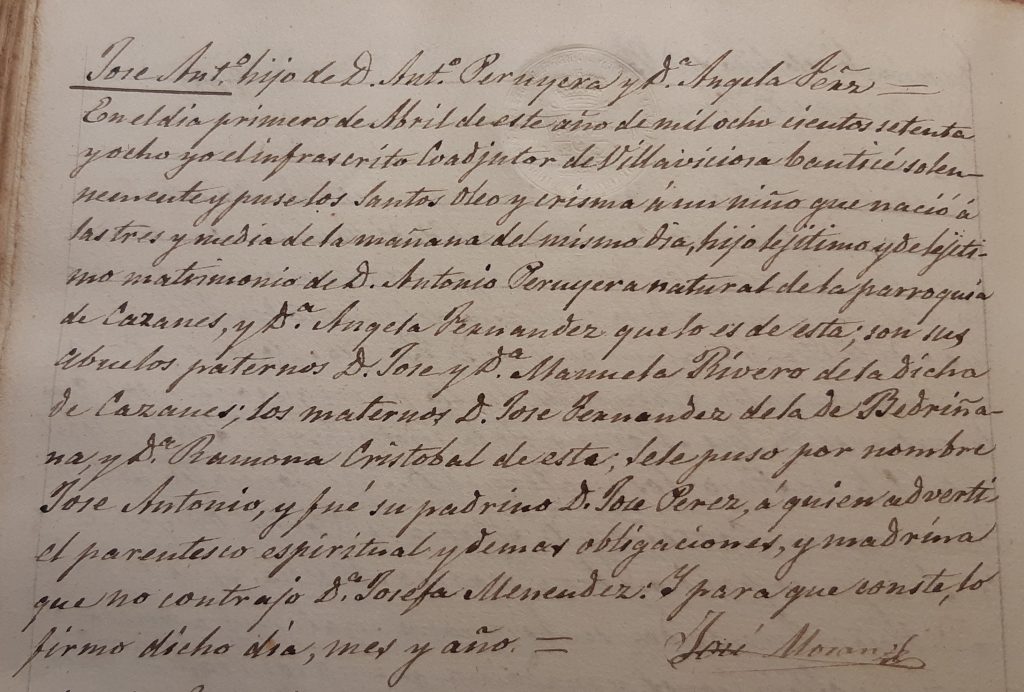 Jose Ant.º hijo de D. Ant.º Peruyera y D.ª Angela Fernz =
En el dia primero de Abril de este año de mil ocho cientos setenta
y ocho yo el infrascrito Coadjutor de Villaviciosa bauticé solem-
nemente y puse los Santos Oleo y crisma á un niño que nació á
las tres y media de la mañana del mismo dia, hijo lejítimo y de lejiti-
mo matrimonio de D. Antonio Peruyera natural de la parroquia
de Cazanes, y D.ª Angela Fernandez que lo es de esta; son sus
abuelos paternos D. Jose y D.ª Manuela Rivero de la dicha
de Cazanes; los maternos D. Jose Fernandez de la de Bedriña-
na, y D.ª Ramona Cristobal de esta; se le puso por nombre
Jose Antonio, y fué su padrino D. Jose Perez, á quien advertí
el parentesco espiritual y demas obligaciones, y madrina
que no contrajo D.ª Josefa Menendez: Y para que conste, lo
firmo dicho dia, mes y año. =
José Moran